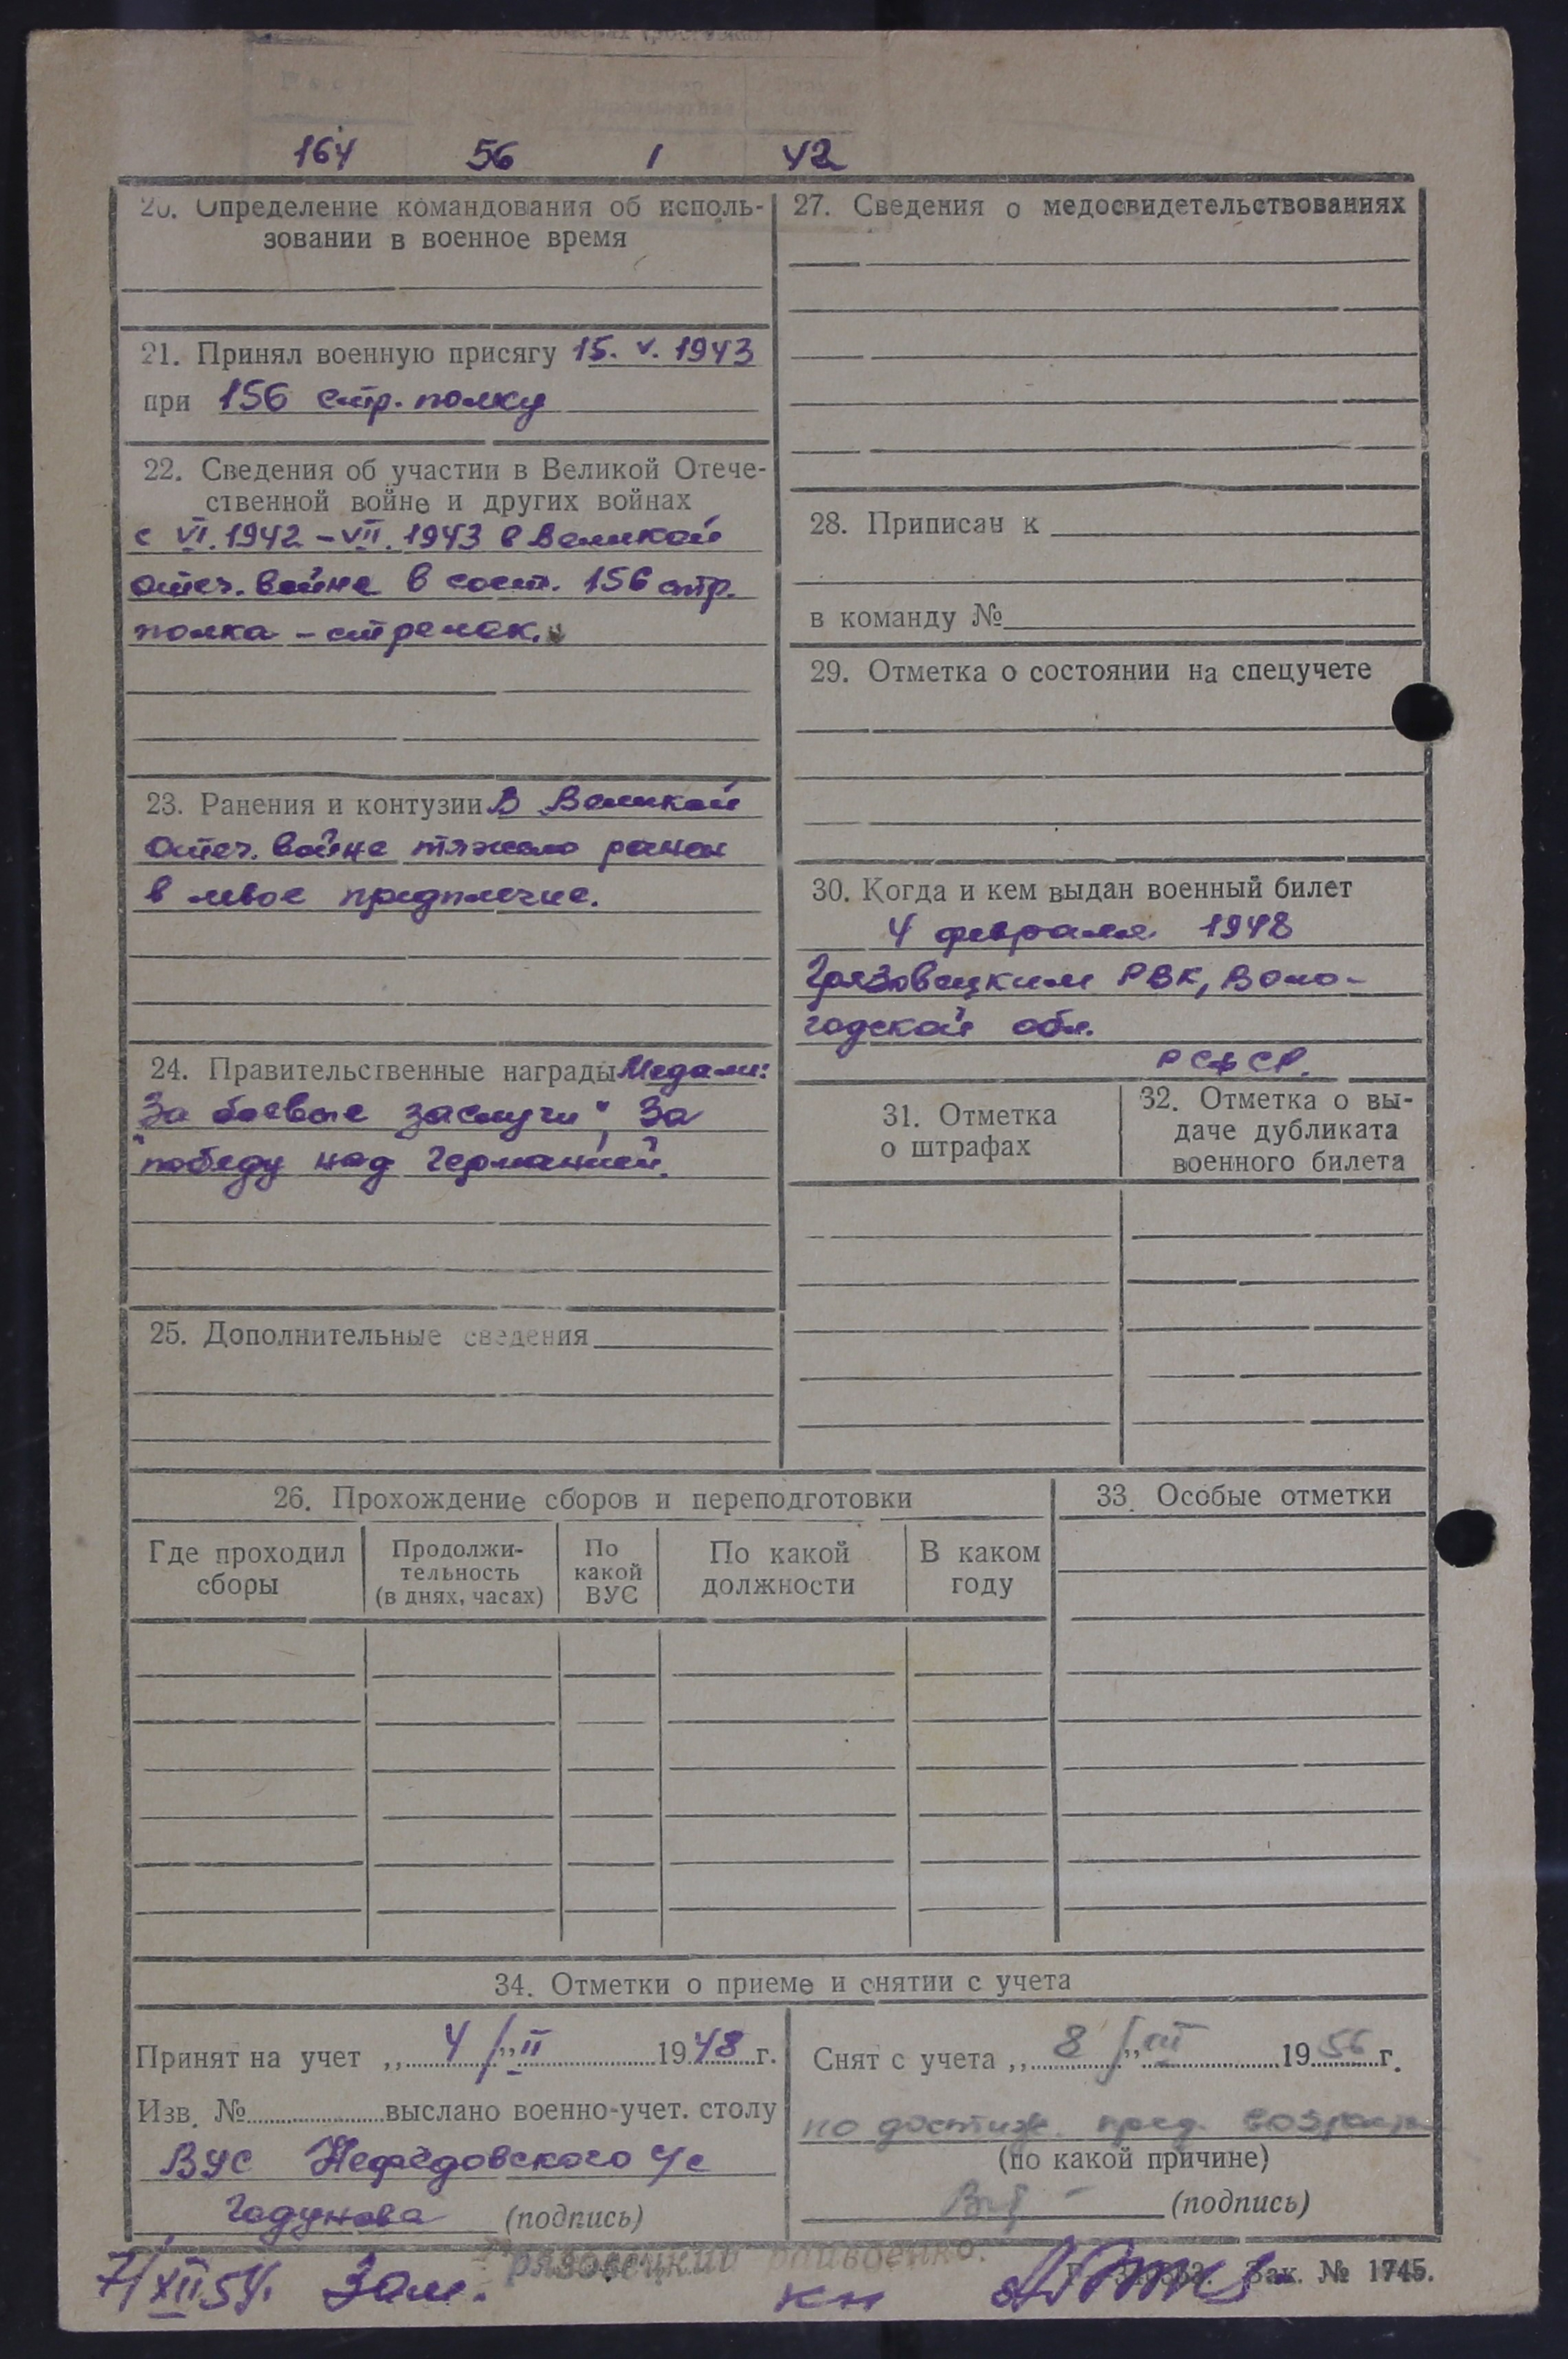 164 56 1 42
20. Определение командования об исполь-
зовании в военное время
21. Принял военную присягу 15. V. 1943
при 156 стр. полку
22. Сведения об участии в Великой Отече-
ственной войне и других войнах
с VI. 1942 – VII. 1943 в Великой
отеч. войне в сост. 156 стр.
полка – стрелок.
23. Ранения и контузии В Великой
отеч. войне тяжело ранен
в левое предплечие.
24. Правительственные награды Медали:
За боевые заслуги", За
"победу над Германией.
25. Дополнительные сведения
27. Сведения о медосвидетельствованиях
28. Приписан к
в команду №
29. Отметка о состоянии на спецучете
30. Когда и кем выдан военный билет
4 февраля 1948
Грязовецким РВК, Воло-
годской обл.
РСФСР.
31. Отметка
о штрафах
32. Отметка о вы-
даче дубликата
военного билета
26. Прохождение сборов и переподготовки
Где проходил
сборы
Продолжи-
тельность
(в днях, часах)
По
какой
ВУС
По какой
должности
В каком
году
33. Особые отметки
34. Отметки о приеме и снятии с учета
Принят на учет „4" II 1948 г.
Изв. № выслано военно-учет. столу
ВУС Нефедовского с/с
Годунова (подпись)
Снят с учета „8" III 1956 г.
по достиж. пред. возраста
(по какой причине)
(подпись)
Грязовецкий райвоенко.
7/XII 54. Зам. Зак. № 1745.